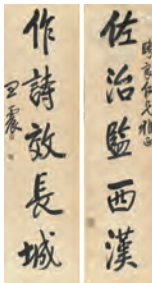 佐治監西漢
作詩效長城
王震